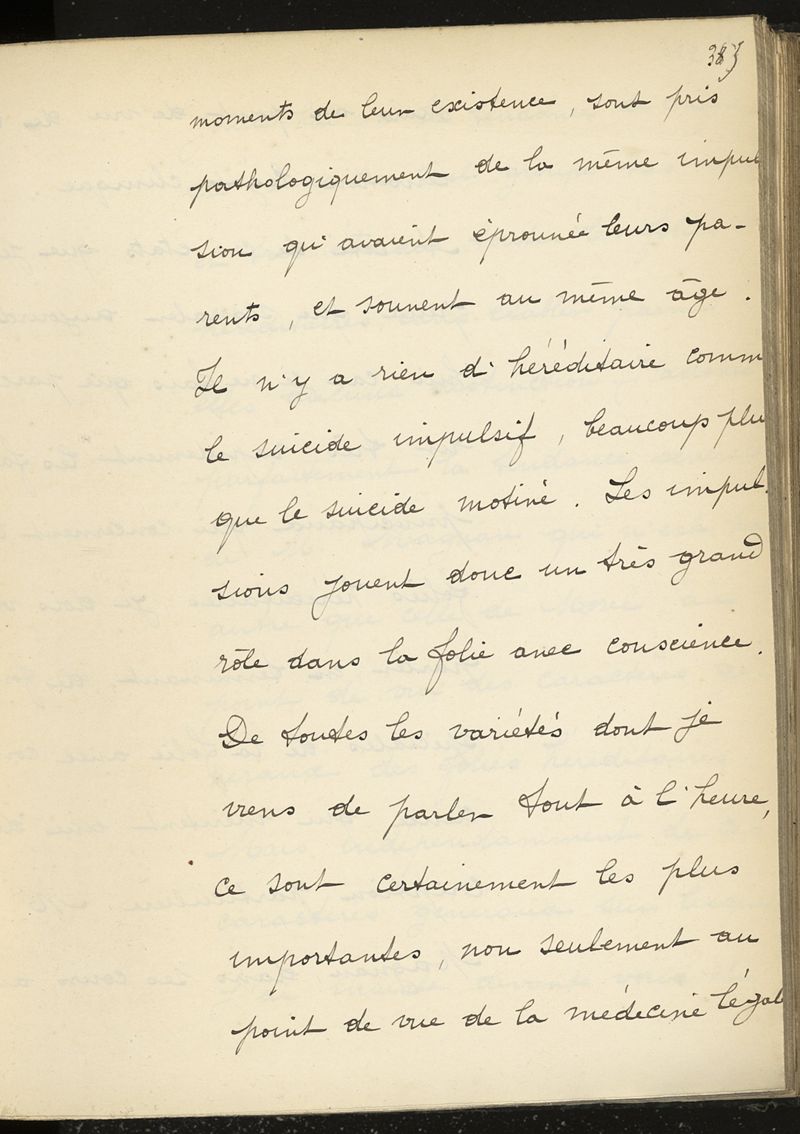 moments de leur existence, sont pris
pathologiquement de la même impul
sion qu'avaient éprouvée leurs pa-
rents, et souvent au même âge.
Il n'y a rien d'héréditaire comm
le suicide impulsif, beaucoup plu
que le suicide motivé. Les impul-
sions jouent donc un très grand
rôle dans la folie avec conscience.
De toutes les variétés dont je
viens de parler tout à l'heure,
ce sont certainement les plus
importantes, non seulement au
point de vue de la médecine légal